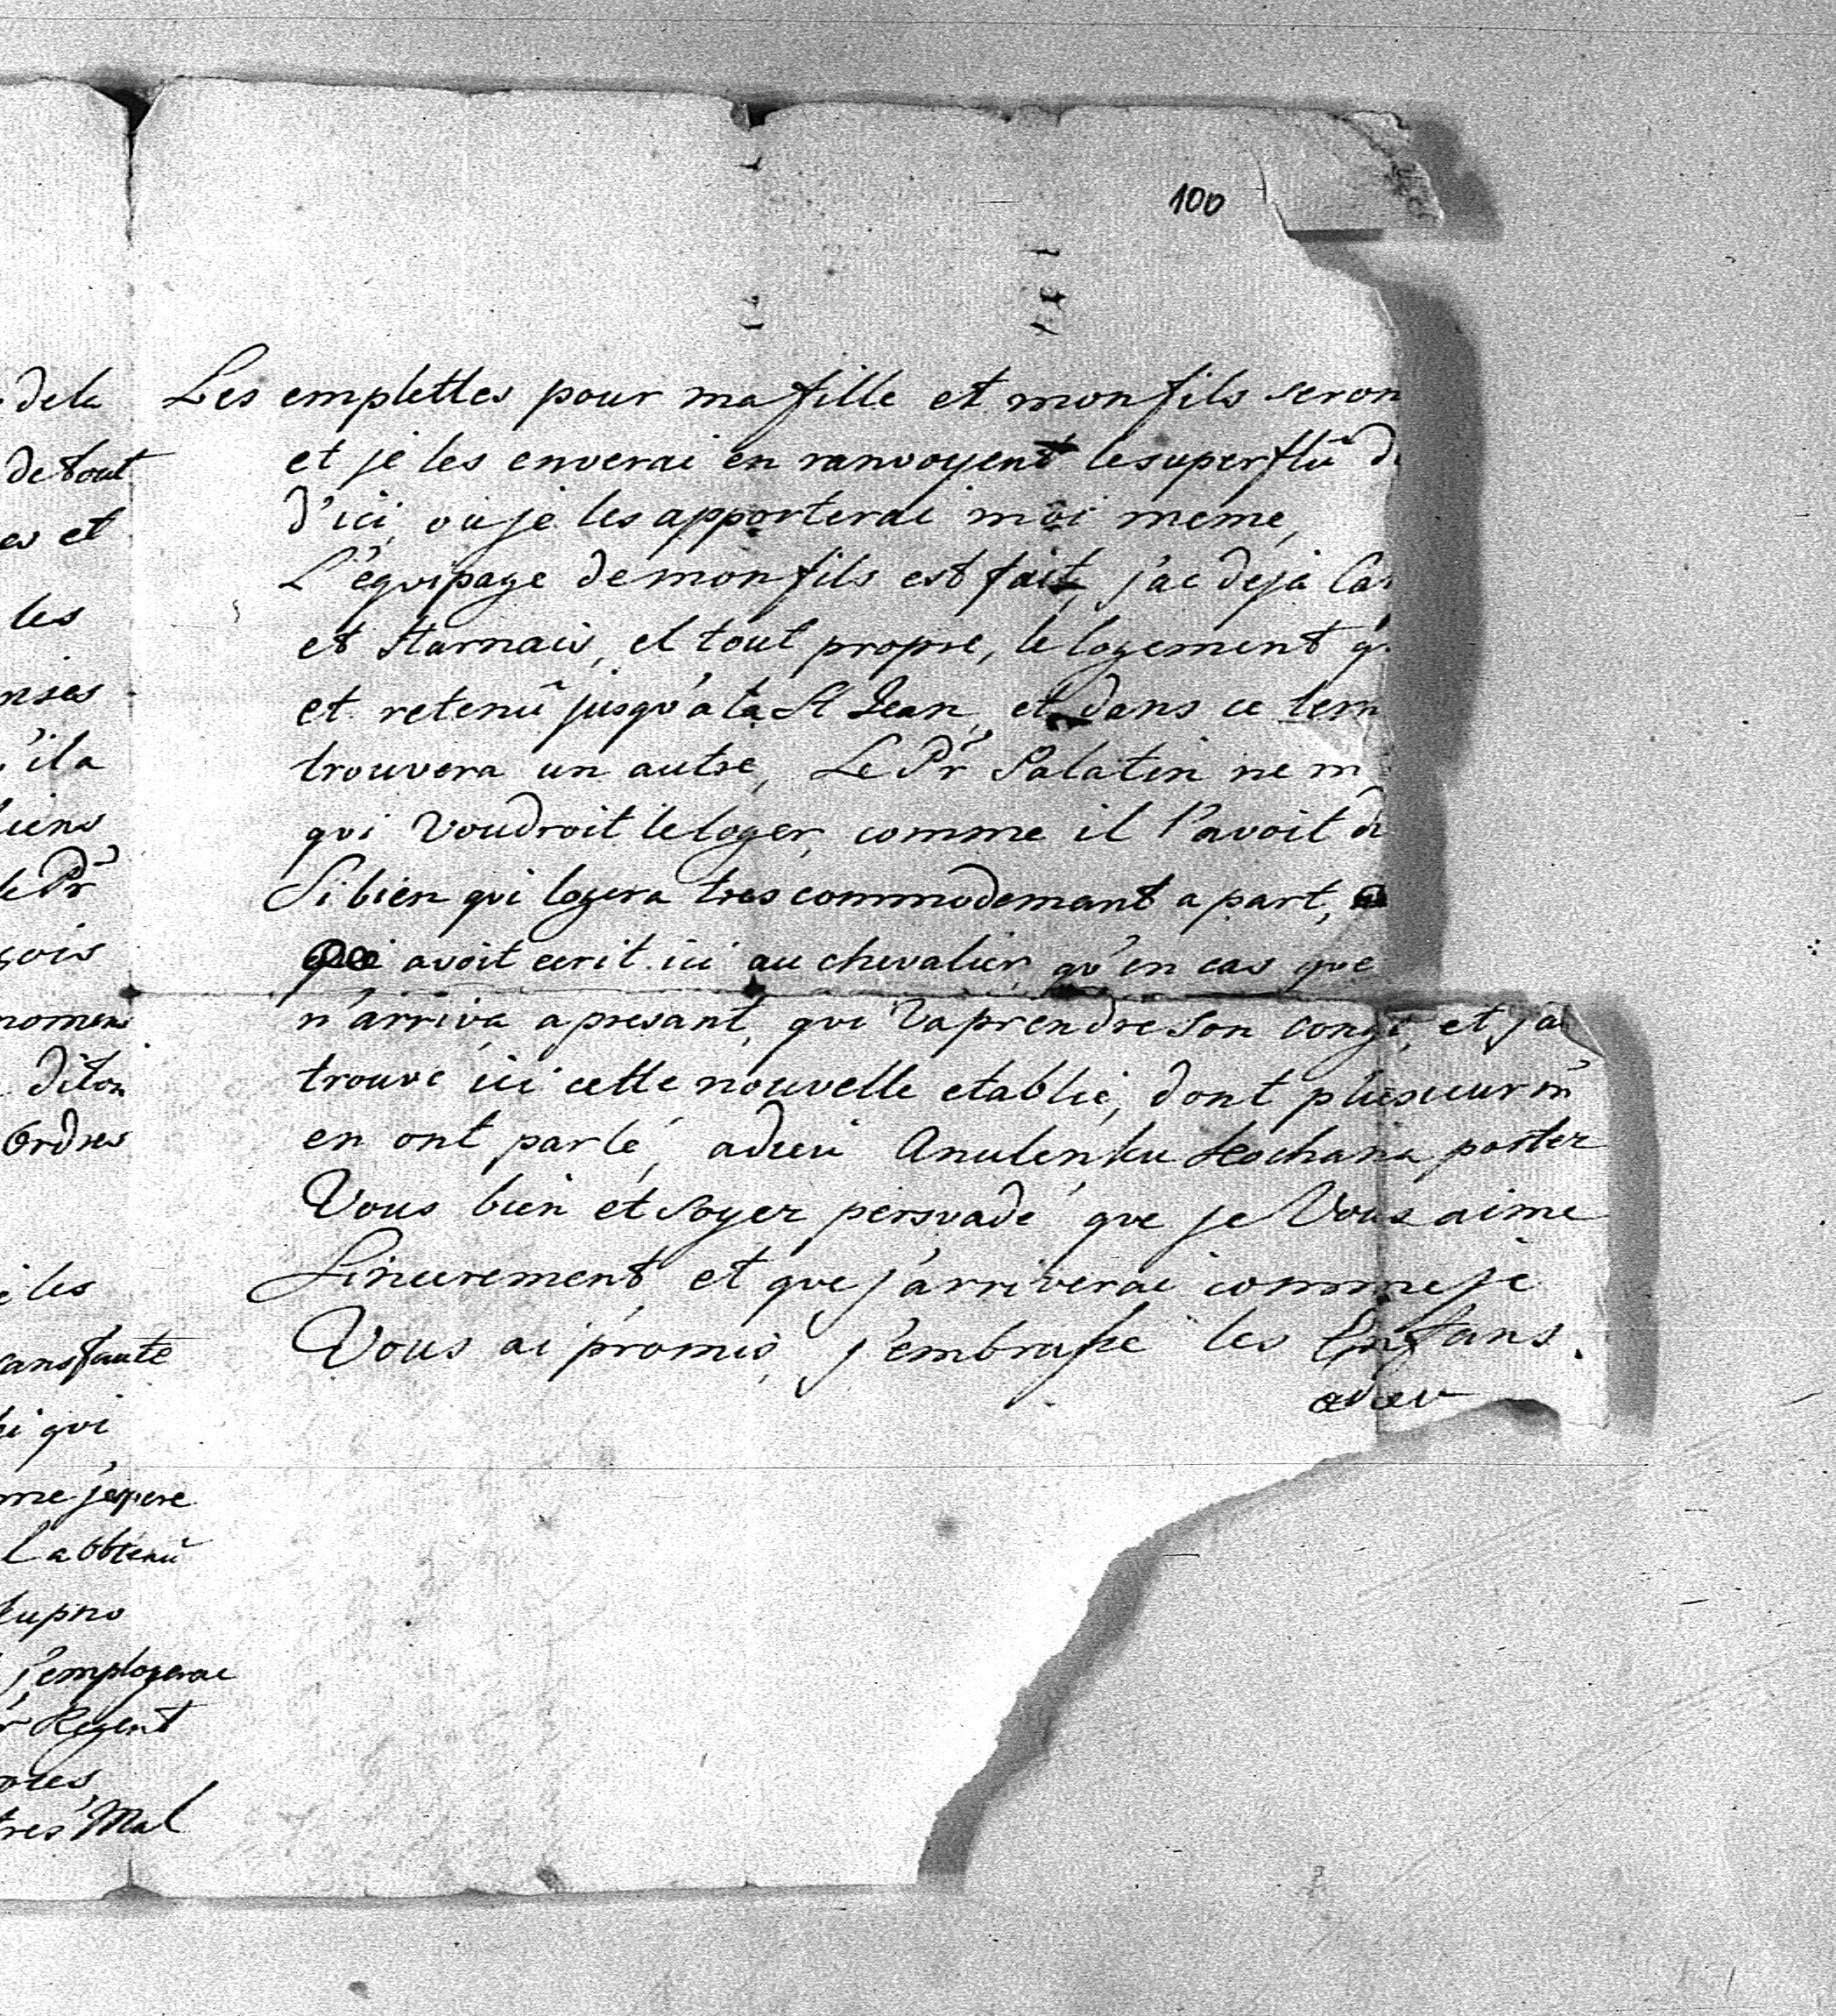 100
dela
de tout
es et
les
nses
'il a
liens
le Pr
çois
momens
diton
Ordres
les
sans faute
qui
me j'espere
l a obtenû
j'employerai
Regent
tres Mal
Les emplettes pour ma fille et mon fils seron
et je les enverai en ranvoyent le superflû d
d'ici, ou je les apporterai moi meme,
L'équipage de mon fils est fait, j'ae deja Ca
et Harnais, et tout propre, le logement q
et retenû jusqu'a la St Jean, et dans ce tem
trouvera un autre, Le Pr Palatin ne m
qui voudroit le loger, comme il l'avoit d
Si bien qui logera tres commodemant a part,
qui avoit ecrit ici au chevalier, qu'en cas que
n'arriva a presant, qui Va prendre son congé, et j'ai
trouvé ici cette nouvelle etablie, dont plusieur m'
en ont parlé, adieu Anulenku Kochana porter
Vous bien et soyer persvadé que je Vous aime
Sincerement, et que j'arriverai comme je
Vous ai promis, j'embrasse les Enfans.